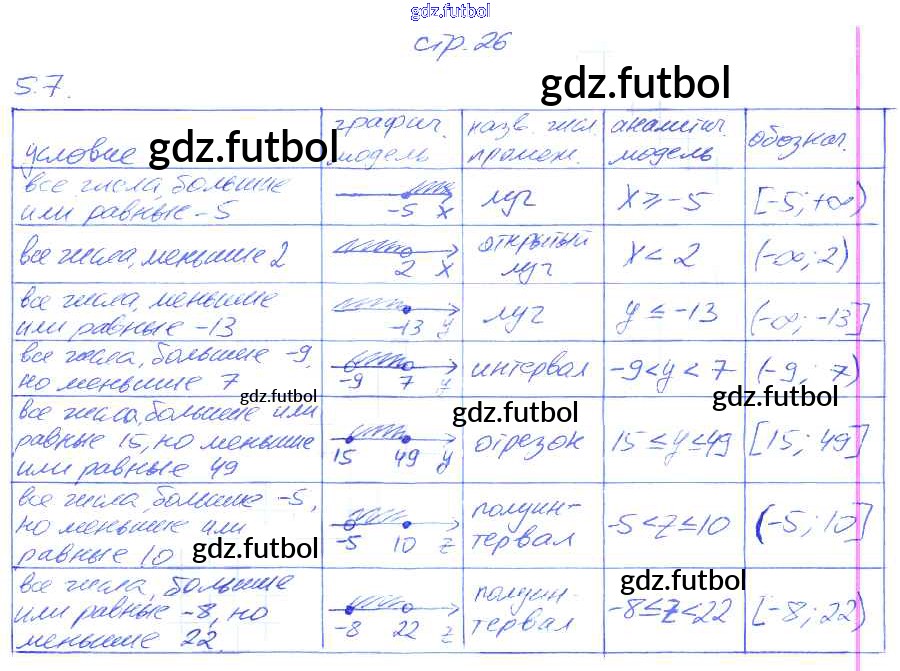 gdz.futbol
стр. 26
gdz.futbol
5.7.
условие
gdz.futbol
графич. модель
назв. числ. промеж.
аналитич. модель
обознач.
все числа, большие
или равные -5
-5 x
луч
x ≥ -5
[-5; +∞)
все числа, меньшие 2
2 x
открытый
луч
x < 2
(-∞; 2)
все числа, меньшие
или равные -13
-13 y
луч
y ≤ -13
(-∞; -13]
все числа, большие -9,
но меньшие 7
-9 7 y
интервал
-9 < y < 7
(-9; 7)
gdz.futbol
gdz.futbol
gdz.futbol
все числа, большие или
равные 15, но меньшие
или равные 49
15 49 y
отрезок
15 ≤ y ≤ 49
[15; 49]
все числа, большие -5,
но меньшие или
равные 10
gdz.futbol
-5 10 z
полуин-
тервал
-5 < z ≤ 10
(-5; 10]
gdz.futbol
все числа, большие
или равные -8, но
меньшие 22.
-8 22 z
полуин-
тервал
-8 ≤ z < 22
[-8; 22)